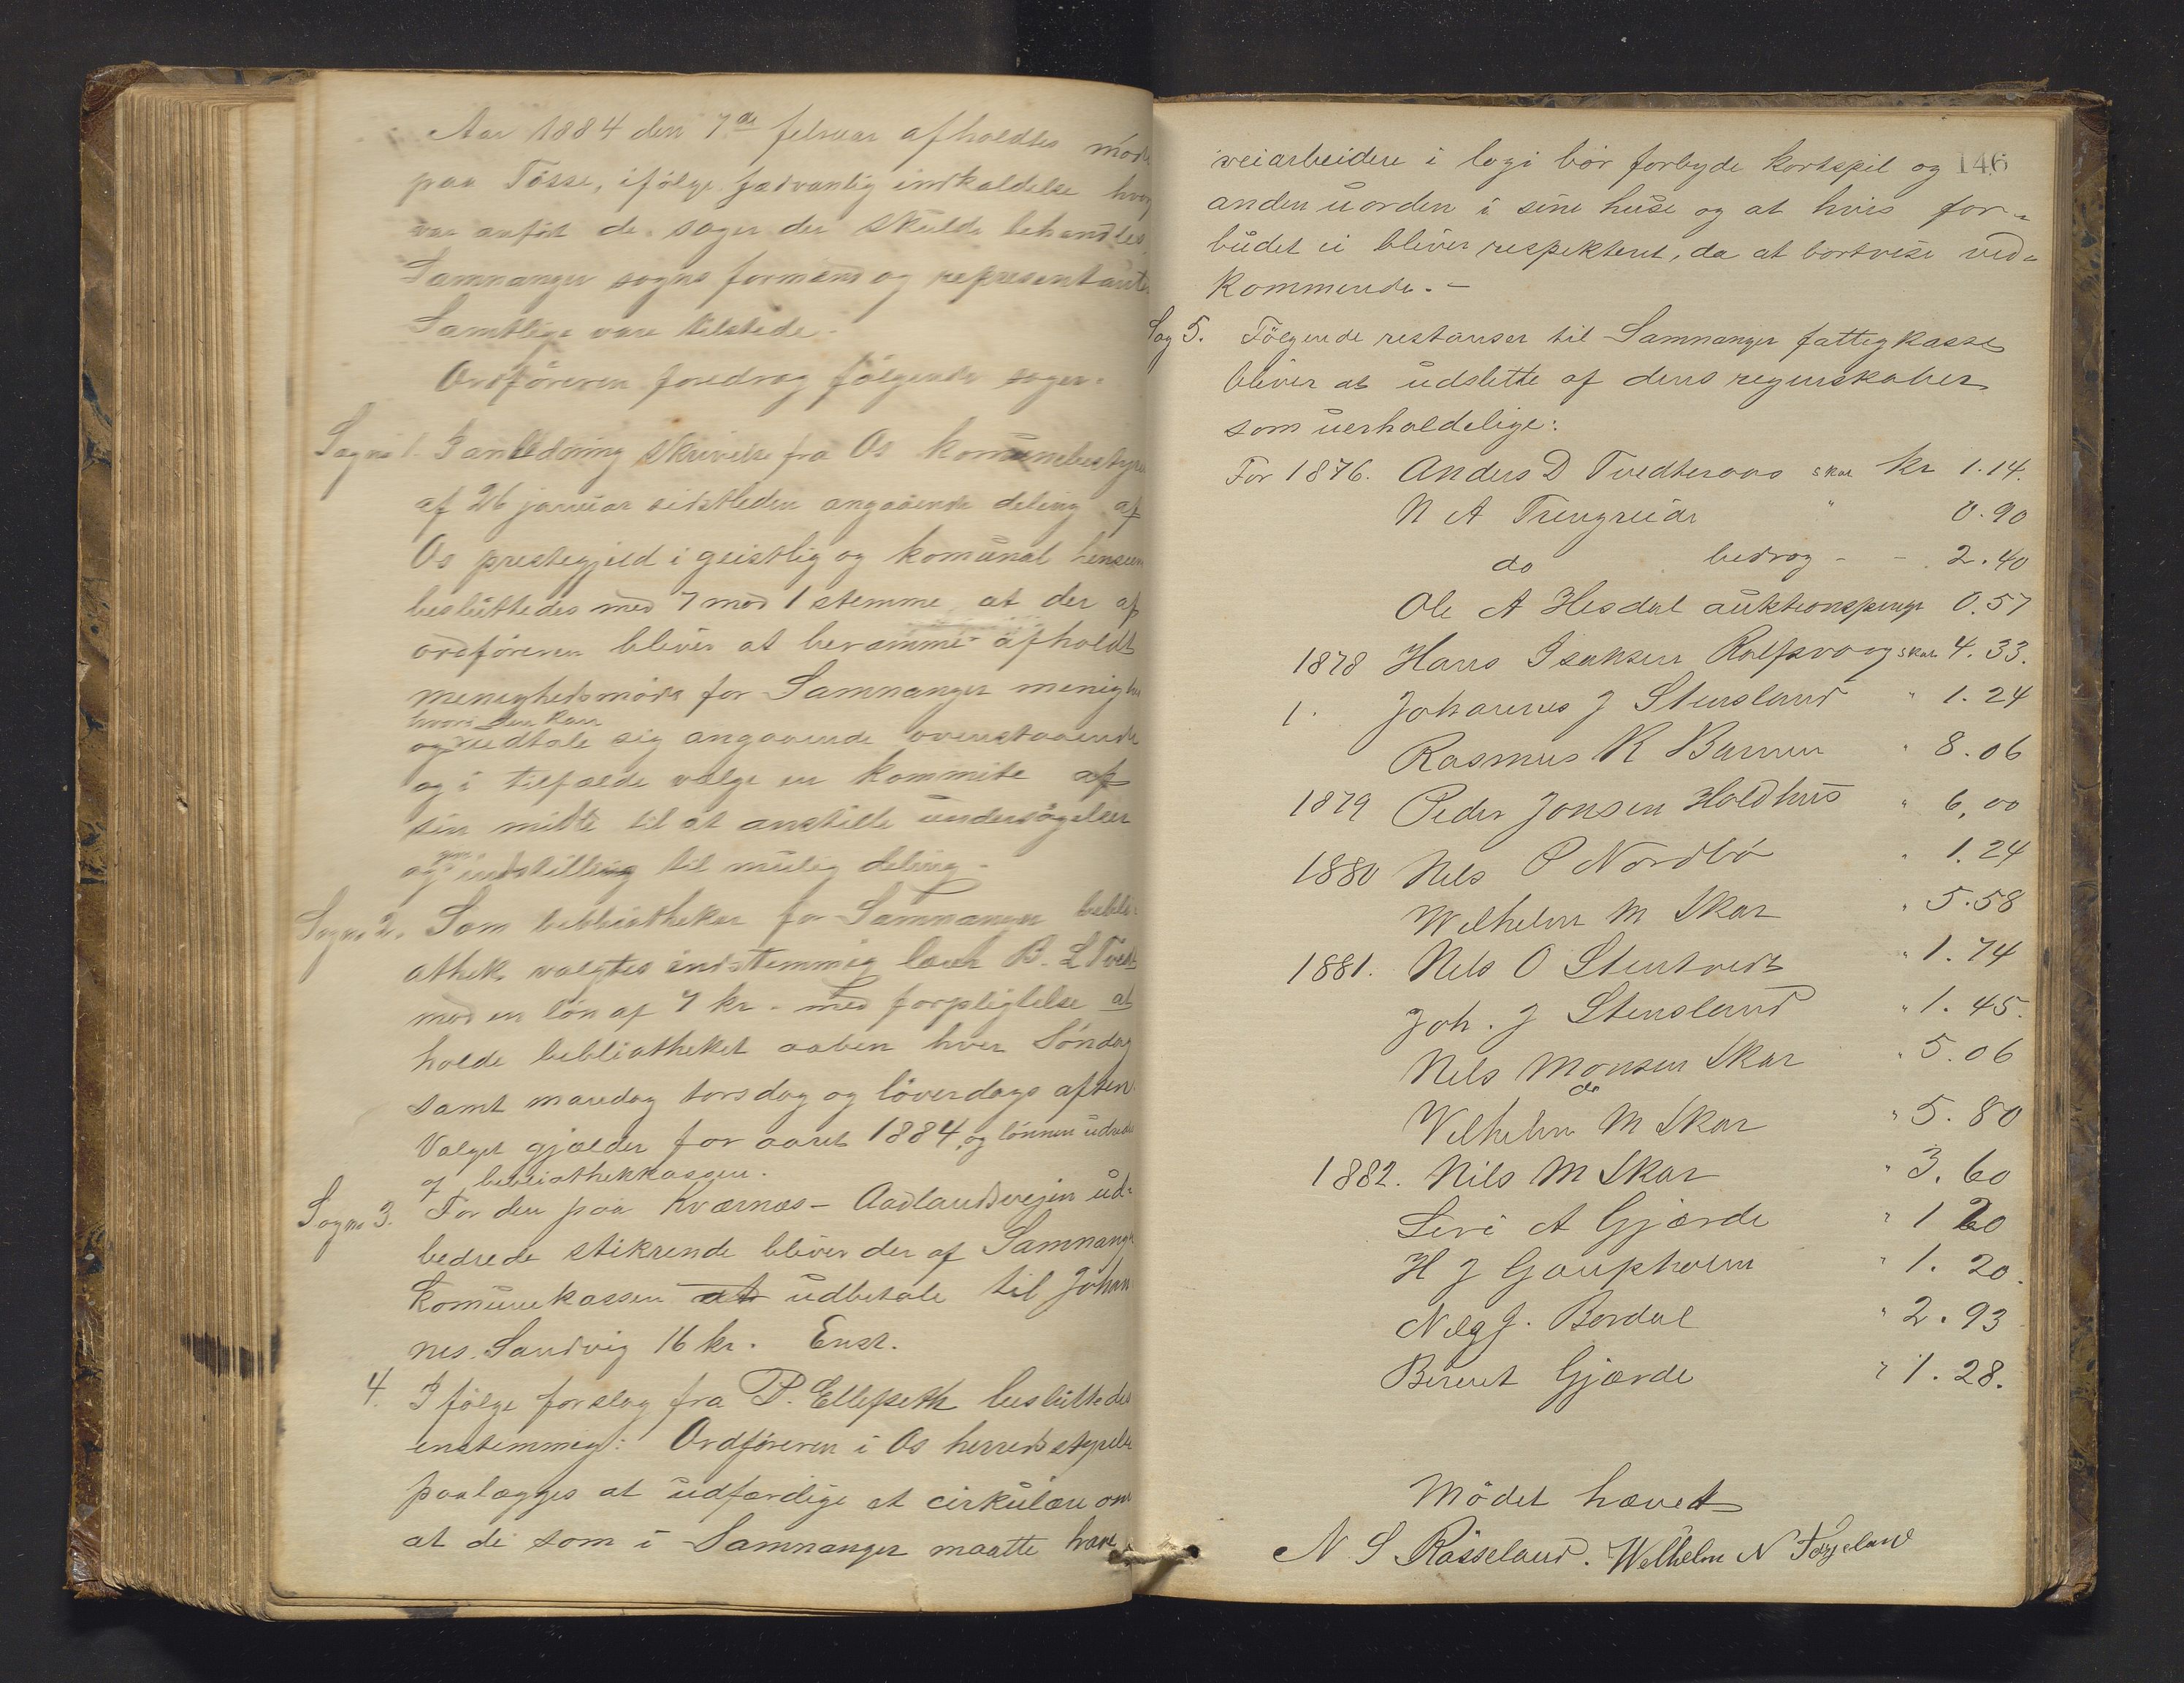 Aar 1884 den 7de februar afholdtes møde
paa Tøsse, ifølge sædvanlig indkaldelse hvor
var anført de sager der skulde behandles
Samnanger sogns formænd og representanter
Samtlige vare tilstede.
Ordføreren foredrog følgende sager.
Sag no 1. I anledning skrivelse fra Os komunebestyre
af 26 januar sidstleden angaaende deling af
Os prestegjeld i geistlig og komunal henseen
besluttedes med 7 mod 1 stemme at der af
ordføreren bliver at beramme afholdt
menighedsmøde for Samnanger menighe
hvori den kan
og udtale sig angaaende ovenstaaende
og i tilfælde vælge en kommite af
sin midte til at anstille undersøgelser
og indstilling til mulig deling.
Sag no 2. Som bibliothekar for Samnanger bibli-
othek valgtes enstemmig B. L Tvedt
mod en løn af 7 kr. med forpligtelse at
holde bibliotheket aaben hver Søndag
samt mandag torsdag og løverdags aften.
Valget gjælder for aaret 1884, og lønnen udrede
af bibliothekkassen.
Sag no 3. For den paa Kværnæs - Aadlandsveien ud-
bedrede stikrende bliver der af Samnanger
komunekassen at udbetale til Johan
nes Sandvig 16 kr. Enst.
4. I følge forslag fra P. Ellefseth besluttedes
enstemmig: Ordføreren i Os herredsstyrelse
paalægges at udfærdige et cirkulære om
at de som i Samnanger maatte have
146
veiarbeidere i logi bør forbyde kortspil og
anden uorden i sine huse og at hvis for-
budet ei bliver respekteret, da at bortvise ved-
kommende. -
Sag 5. Følgende restanser til Samnanger fattigkasse
bliver at udslette af dens regnskaber
som uerholdelige:
For 1876. Anders D Tvedteraas skat kr 1.14.
N A Trengreide " 0.90
do bedrag - - 2.40
Ole A Hisdal auktionspenge 0.57
1878 Hans Isaksen Rolfsvaag skat 4.33.
1. Johannes J Stensland " 1.24
Rasmus K " 8.06
1879 Peder Jonsen Holdhus " 6,00
1880 Nels P Nordbø " 1.24
Wilhelm M Skar " 5.58
1881. Nels O Stentvedt " 1.74
Joh. J Stensland " 1.45.
Nels Monsen Skar " 5.06
do
Vilhelm M Skar " 5.80
1882. Nils M Skar " 3.60
Sivi A Gjærde " 1 20
H J Gaupholm " 1.20.
J. Bordal " 2.93
Berent Gjærde " 1.28.
Mødet hævet
N. S Røsseland. Wilhelm N